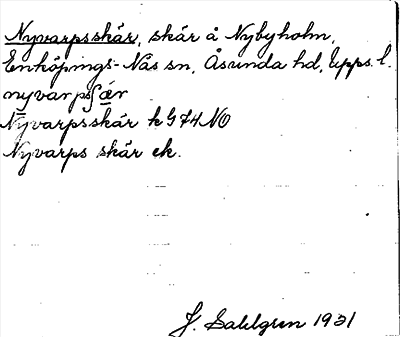 Nyvarpsskär, skär å Nybyholm,
Enköpings-Näs sn, Åsunda hd, Upps. l.
nyvarpsʃæ̀r
Nyvarpsskär k G 74 NO
Nyvarps skär ek.
J. Sahlgren 1931